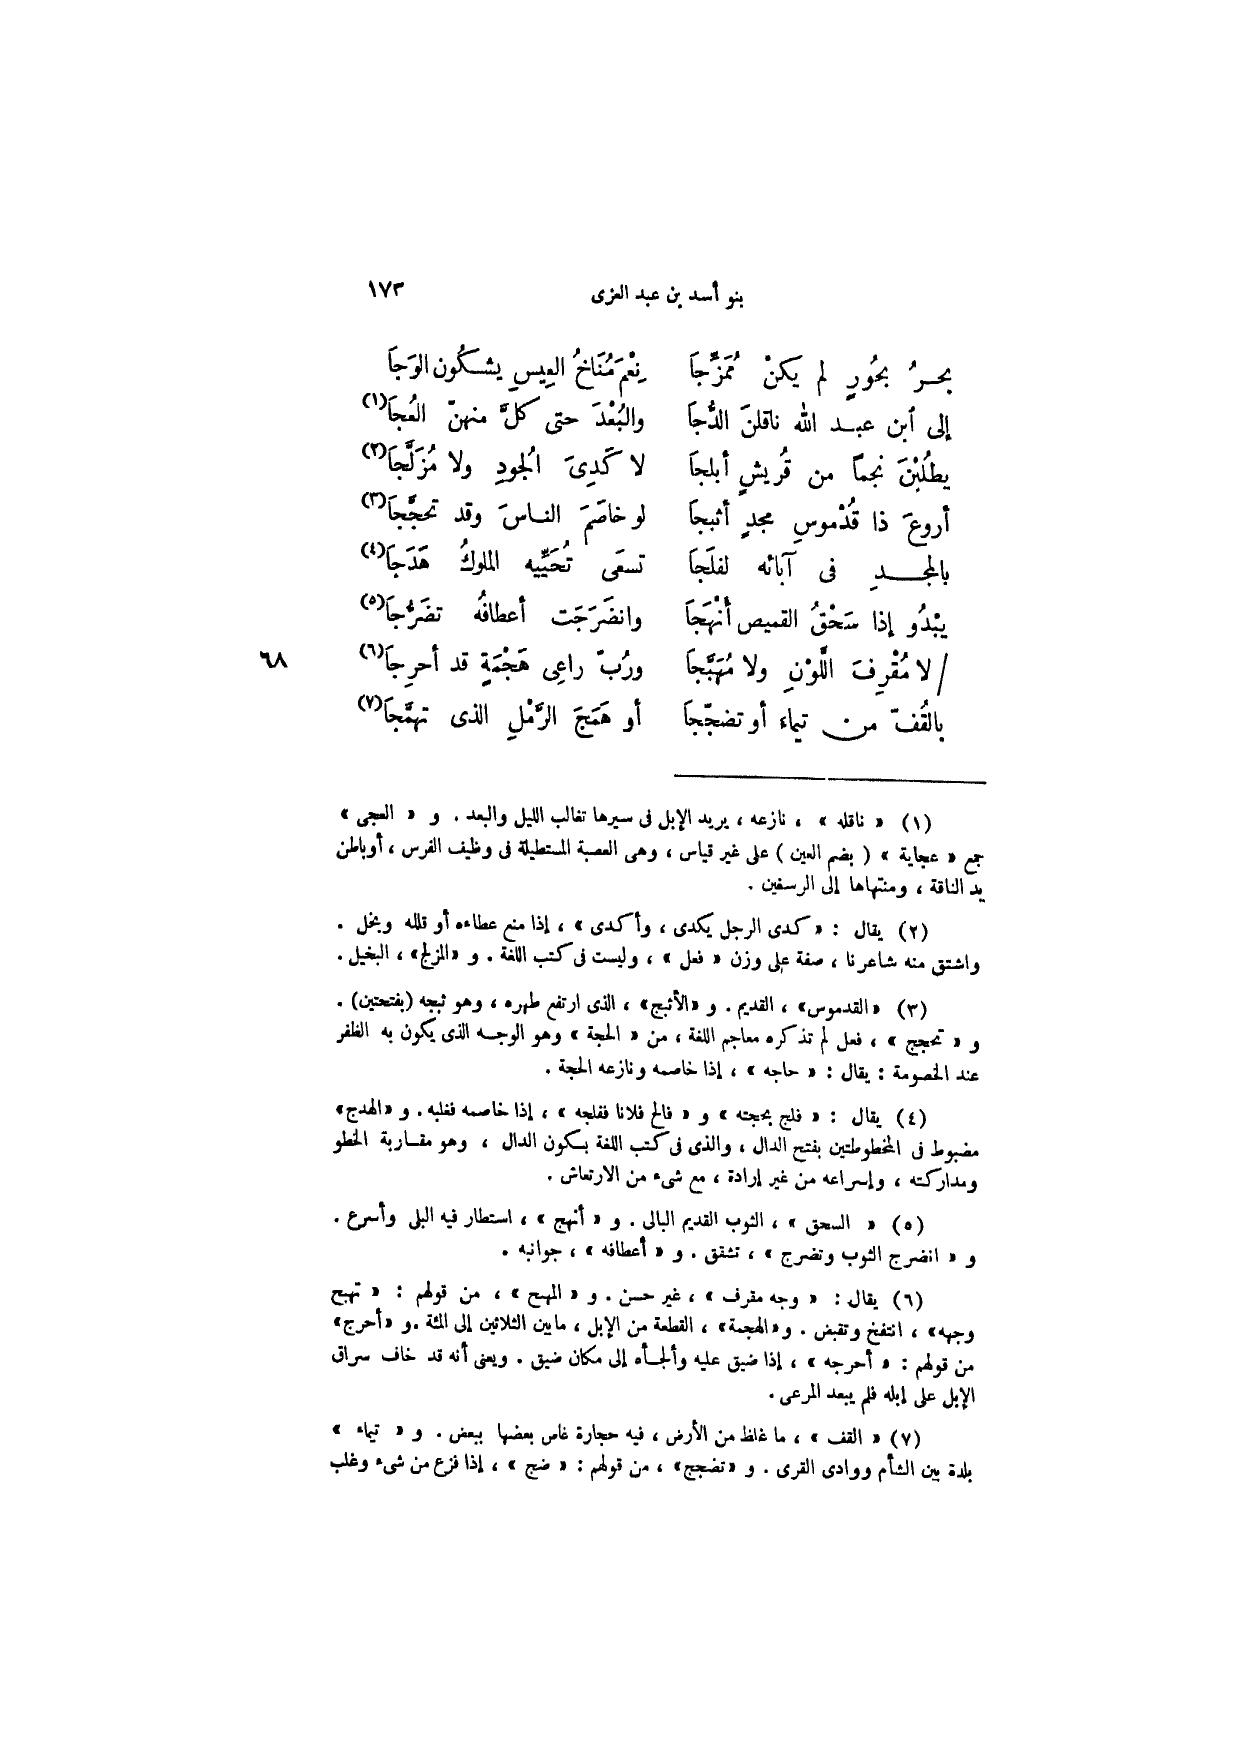 بنو أسد بن عبد العزى ١٧٣
بحرُ بحُورٍ لم يكنْ مُمَزَّجاَ نِعْمَ مُنَاخُ العِيسِ يشكُون الوَجاَ
إلى ٱبن عبد الله ناقلنَ الدُّجاَ والبُعْدَ حتى كلَّ منهنّ العُجاَ(١)
يطلُبْنَ نجماً من قُريشٍ أبلجاَ لا كَدِىَ الُجودِ ولا مُزَلَّجاَ(٢)
أروعَ ذا قُدْموسِ مجدٍ أثبجاَ لو خاصَمَ الناسَ وقد تحجَّجاَ(٣)
بالمجدِ فى آبائه لفلَجاَ تسعَى تُحَيِّيه الملوكُ هَدَجاَ(٤)
يبْدُو إذا سَحْقُ القميص أنْهَجاَ وانضَرَجَت أعطافُه تضَرُّجاَ(٥)
/ لا مُقْرِفَ اللَّوْنِ ولا مُهَبَّجاَ ورُبّ راعِى هَجْمَةٍ قد أحرِجاَ(٦) ٦٨
بالقُفّ من تيماء أو تضجّجاَ أو هَمَجَ الرَّمْلِ الذى تهمَّجاَ(٧)
(١) « ناقله » ، نازعه ، يريد الإبل فى سيرها تغالب الليل والبعد . و « العجى »
جمع « عجاية » ( بضم العين ) على غير قياس ، وهى العصبة المستطيلة فى وظيف الفرس ، أوباطن
يد الناقة ، ومنتهاها إلى الرسغين .
(٢) يقال : « كدى الرجل يكدى ، وأكدى » ، إذا منع عطاءه أو قلله وبخل .
واشتق منه شاعرنا ، صفة على وزن « فعل » ، وليست فى كتب اللغة . و «المزلج» ، البخيل .
(٣) «القدموس» ، القديم . و «الأثبج» ، الذى ارتفع ظهره ، وهو ثبجه (بفتحتين) .
و « تحجج » ، فعل لم تذكره معاجم اللغة ، من « الحجة » وهو الوجه الذى يكون به الظفر
عند الخصومة : يقال : « حاجه » ، إذا خاصمه ونازعه الحجة .
(٤) يقال : « فلج بحجته » و « فالج فلانا ففلجه » ، إذا خاصمه فغلبه . و «الهدج»
مضبوط فى المخطوطتين بفتح الدال ، والذى فى كتب اللغة بسكون الدال ، وهو مقاربة الخطو
ومداركته ، وإسراعه من غير إرادة ، مع شىء من الارتعاش .
(٥) « السحق » ، الثوب القديم البالى . و « أنهج » ، استطار فيه البلى وأسرع .
و « انضرج الثوب وتضرج » ، تشقق . و « أعطافه » ، جوانبه .
(٦) يقال : « وجه مقرف » ، غير حسن . و « المهبج » ، من قولهم : « تهبج
وجهه» ، انتفخ وتقبض . و«الهجمة» ، القطعة من الإبل ، مابين الثلاثين إلى المئة .و «أحرج»
من قولهم : « أحرجه » ، إذا ضيق عليه وألجأه إلى مكان ضيق . ويعنى أنه قد خاف سراق
الإبل على إبله فلم يبعد المرعى .
(٧) « القف » ، ما غلظ من الأرض ، فيه حجارة غاص بعضها ببعض . و « تيماء »
بلدة بين الشأم ووادى القرى . و «تضجج» ، من قولهم : « ضج » ، إذا فزع من شىء وغلب